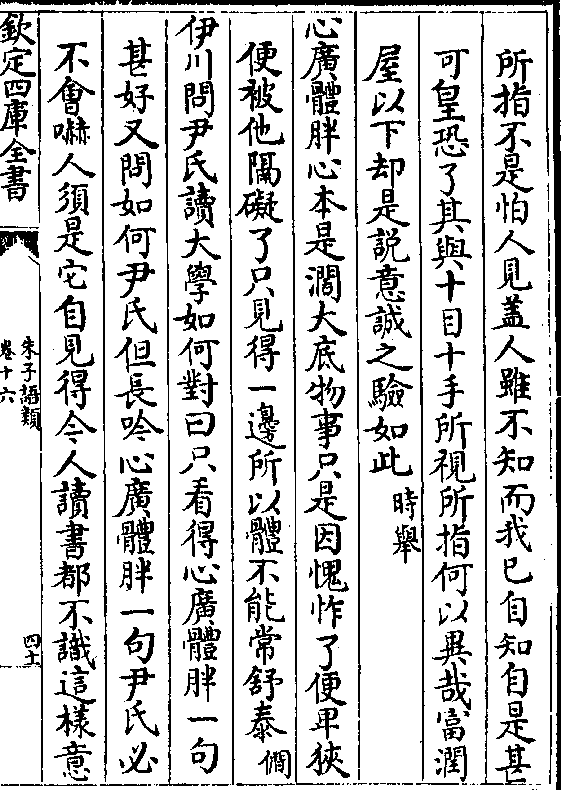 所指不是怕人見盖人雖不知而我已自知自是甚
可皇恐了其與十目十手所視所指何以異哉富潤
屋以下却是説意誠之驗如此時舉
心廣體胖心本是濶大底物事只是因愧怍了便卑狹
便被他隔礙了只見得一邊所以體不能常舒泰僩
伊川問尹氏讀大學如何對曰只看得心廣體胖一句
甚好又問如何尹氏但長吟心廣體胖一句尹氏必
不會嚇人須是它自見得今人讀書都不識這樣意
欽定四庫全書
朱子語類
卷十六
四十